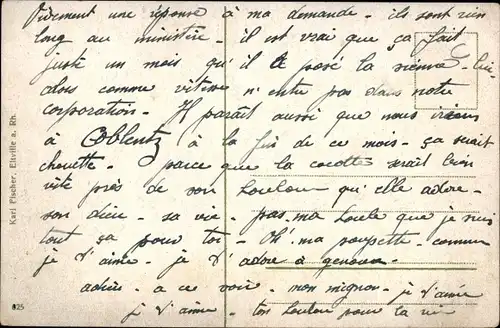 Vivement une réponse à ma demande - ils sont bien
long au ministère - il est vrai que ça fait
juste un mois qu'il l'a posé la sienne -
alors comme vitesse n'entre pas dans notre
corporation - Il paraît aussi que nous irions
à Coblentz à la fin de ce mois - ça serait
chouette - parce que la cocotte serait bien
vite près de son Loulou qu'elle adore -
son dieu - sa vie - pas ma Loute que je suis
tout ça pour toi - Oh! ma poupette - comme
je t'aime - je t'adore à genoux -
adieu - a ce soir - mon mignon - je t'aime
je t'aime - ton Loulou pour la vie
Karl Fischer, Eltville a. Rh.
825